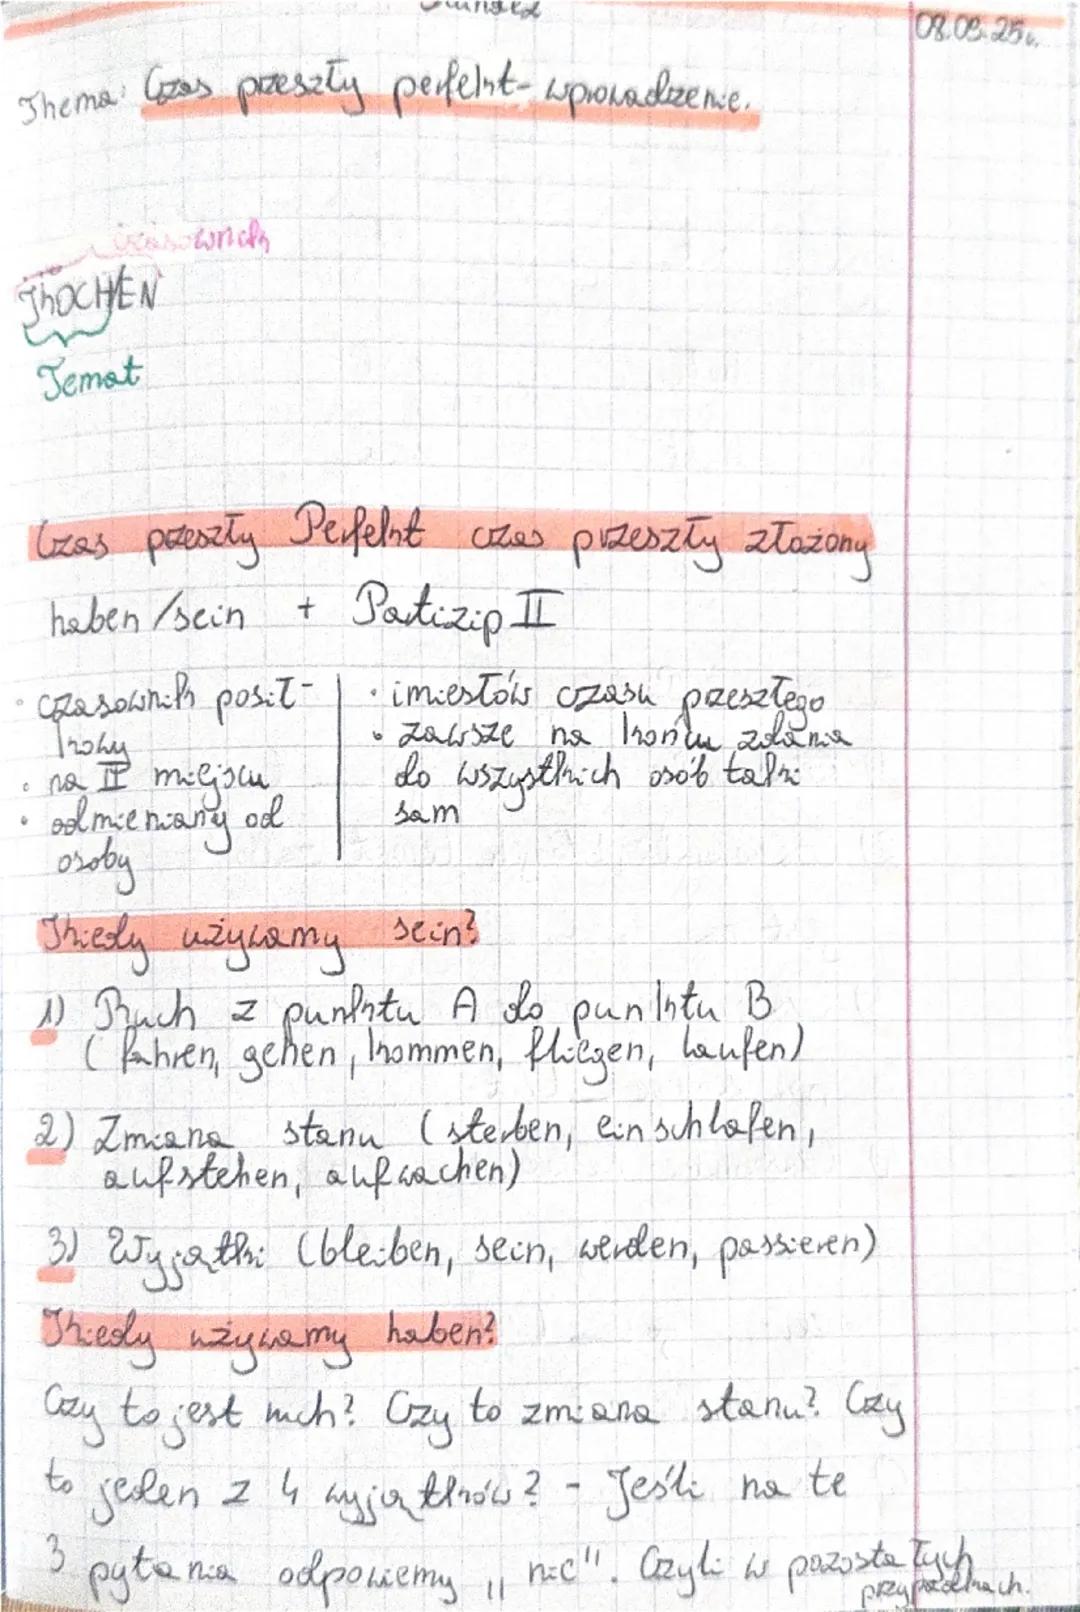 08.09.25r.
Thema: Czas przeszły perfekt- wprowadzenie.
czasownik
KOCH/EN
Temat
Czas przeszły Perfekt czas przeszły złożony
haben/sein + Partizip II
• czasownik posił-
kowy
• na II miejscu
• odmieniany od
osoby
• imiesłów czasu przeszłego
• zawsze na końcu zdania
do wszystkich osób taki
sam
Kiedy używamy sein?
1) Ruch z punktu A do punktu B
(fahren, gehen, kommen, fliegen, laufen)
2) Zmiana stanu (sterben, einschlafen,
aufstehen, aufwachen)
3) Wyjątki (bleiben, sein, werden, passieren)
Kiedy używamy haben?
Czy to jest ruch? Czy to zmiana stanu? Czy
to jeden z 4 wyjątków? - Jeśli na te
3 pytania odpowiemy „nie". Czyli w pozostałych
przypadkach.